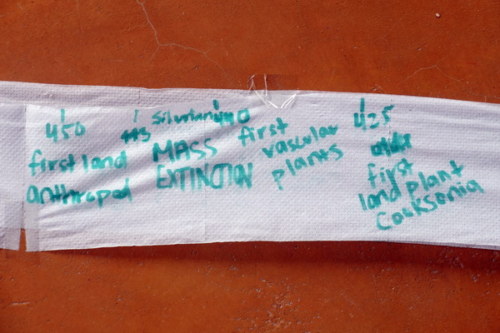 450
first land
anthropod
443
silurian
MASS
EXTINCTION
440
first
vascular
plants
425
first
land plant
Cooksonia